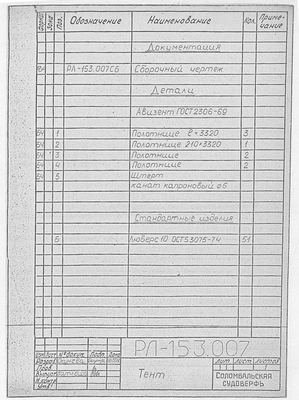 Формат Зона Поз. Обозначение Наименование Кол. Примечание
Документация
РЛ-153.007СБ Сборочный чертеж
Детали
Авизент ГОСТ2306-69
БЧ 1 Полотнище 3
БЧ 2 Полотнище 1
БЧ 3 Полотнище 2
БЧ 4 Полотнище 2
БЧ 5 Штерт
канат капроновый ø6
Стандартные изделия
6 Люверс 10 ОСТ5 3075-74 51
РЛ-153.007
Изм Лист № докум. Подп. Дата
Разраб
Пров
Н.контр
Утв
Тент
Лит Лист Листов
Соломбальская
судоверфь